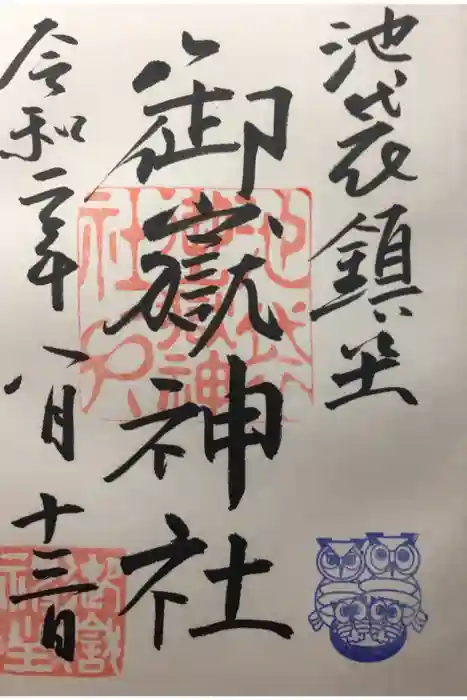 池袋鎮坐
御嶽神社
令和二年八月十三日
池袋御嶽神社
御嶽神社